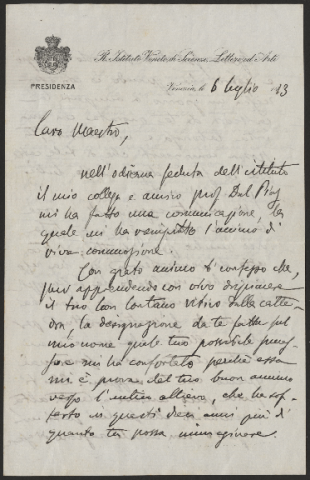 R. Istituto Veneto di Scienze, Lettere ed Arti
PRESIDENZA
Venezia, le 6 luglio 13
Caro Maestro,
nell'odierna seduta dell'istituto
il mio collega e amico prof. Dal Piaz
mi ha fatto una comunicazione, la
quale mi ha riempito l'animo di
viva commozione.
Con grato animo ti confesso che,
pur apprendendo con vivo dispiacere
il tuo non lontano ritiro dalla catte-
dra, la designazione da te fatta sul
mio nome quale tuo possibile
mi ha confortato perché essa
mi è prova del tuo buon animo
verso l'antico allievo, che ha sof-
ferto in questi dieci anni più di
quanto tu possa immaginare.